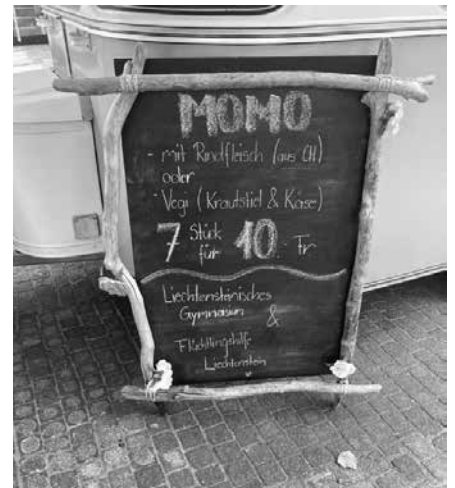 MOMO
- mit Rindfleisch (aus CH)
oder
- Vegi (Krautstiel & Käse)
7 Stück für 10.- Fr
Liechtensteinisches
Gymnasium &
Flüchtlingshilfe
Liechtenstein